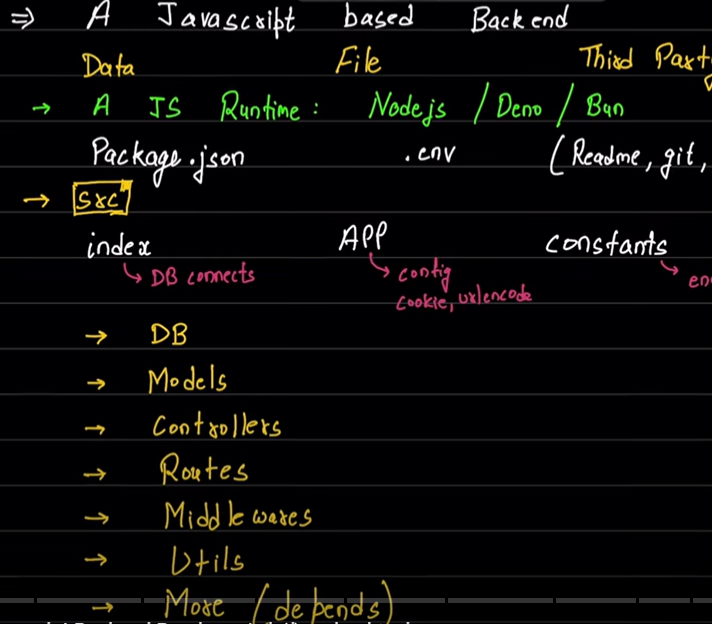 ⇒ A Javascript based Backend
Data File Third Part
→ A JS Runtime : Nodejs / Deno / Bun
Package.json .env (Readme, git,
→ src
index APP constants
↳ DB connects ↳ config ↳ en
cookie, urlencode
→ DB
→ Models
→ Controllers
→ Routes
→ Middlewares
→ Utils
→ More (depends)